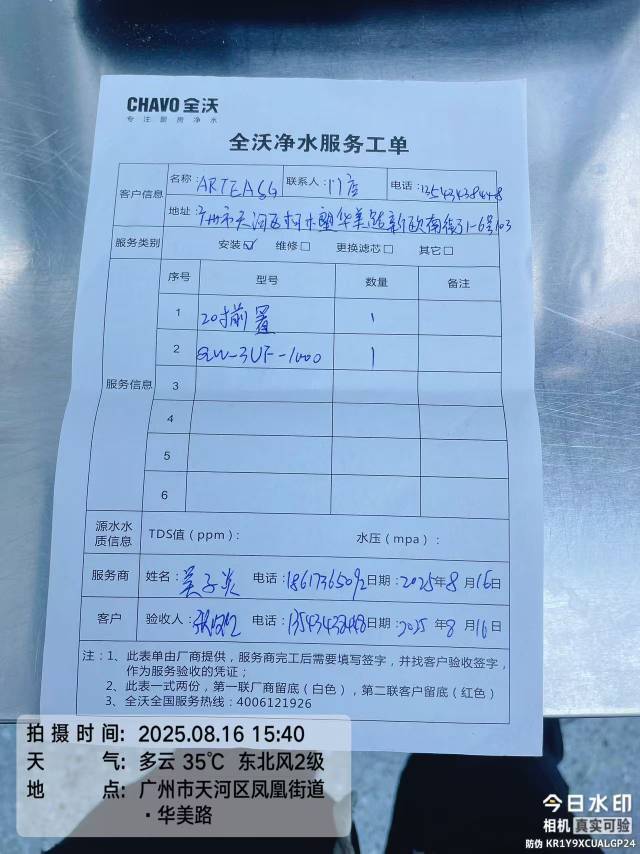 CHAVO 全沃
专注厨房净水
全沃净水服务工单
客户信息 名称: ARTEASG 联系人: 门店 电话:
地址: 广州市天河区柯木塱华美路新欧南街31-6号103
服务类别 安装☑ 维修□ 更换滤芯□ 其它□
服务信息
序号 型号 数量 备注
1 20寸前置 1
2 QW-3UF-1000 1
3
4
5
6
源水水质信息 TDS值(ppm): 水压(mpa):
服务商 姓名: 吴子炎 电话: 18617365092 日期: 2025年8月16日
客户 验收人: 电话: 日期: 2025年8月16日
注: 1、此表单由厂商提供，服务商完工后需要填写签字，并找客户验收签字，
作为服务验收的凭证；
2、此表一式两份，第一联厂商留底（白色），第二联客户留底（红色）
3、全沃全国服务热线: 4006121926
拍摄时间: 2025.08.16 15:40
天气: 多云 35℃ 东北风2级
地点: 广州市天河区凤凰街道
·华美路
今日水印
相机 真实可验
防伪 KR1Y9XCUALGP24